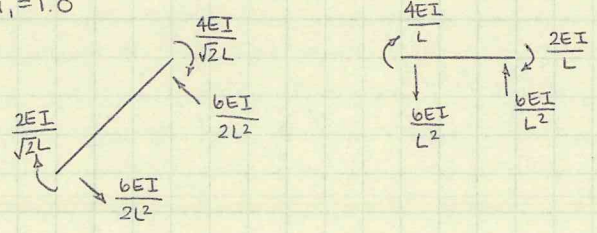 =1.0
4EI/√2L
6EI/2L²
2EI/√2L
6EI/2L²
4EI/L
2EI/L
6EI/L²
6EI/L²